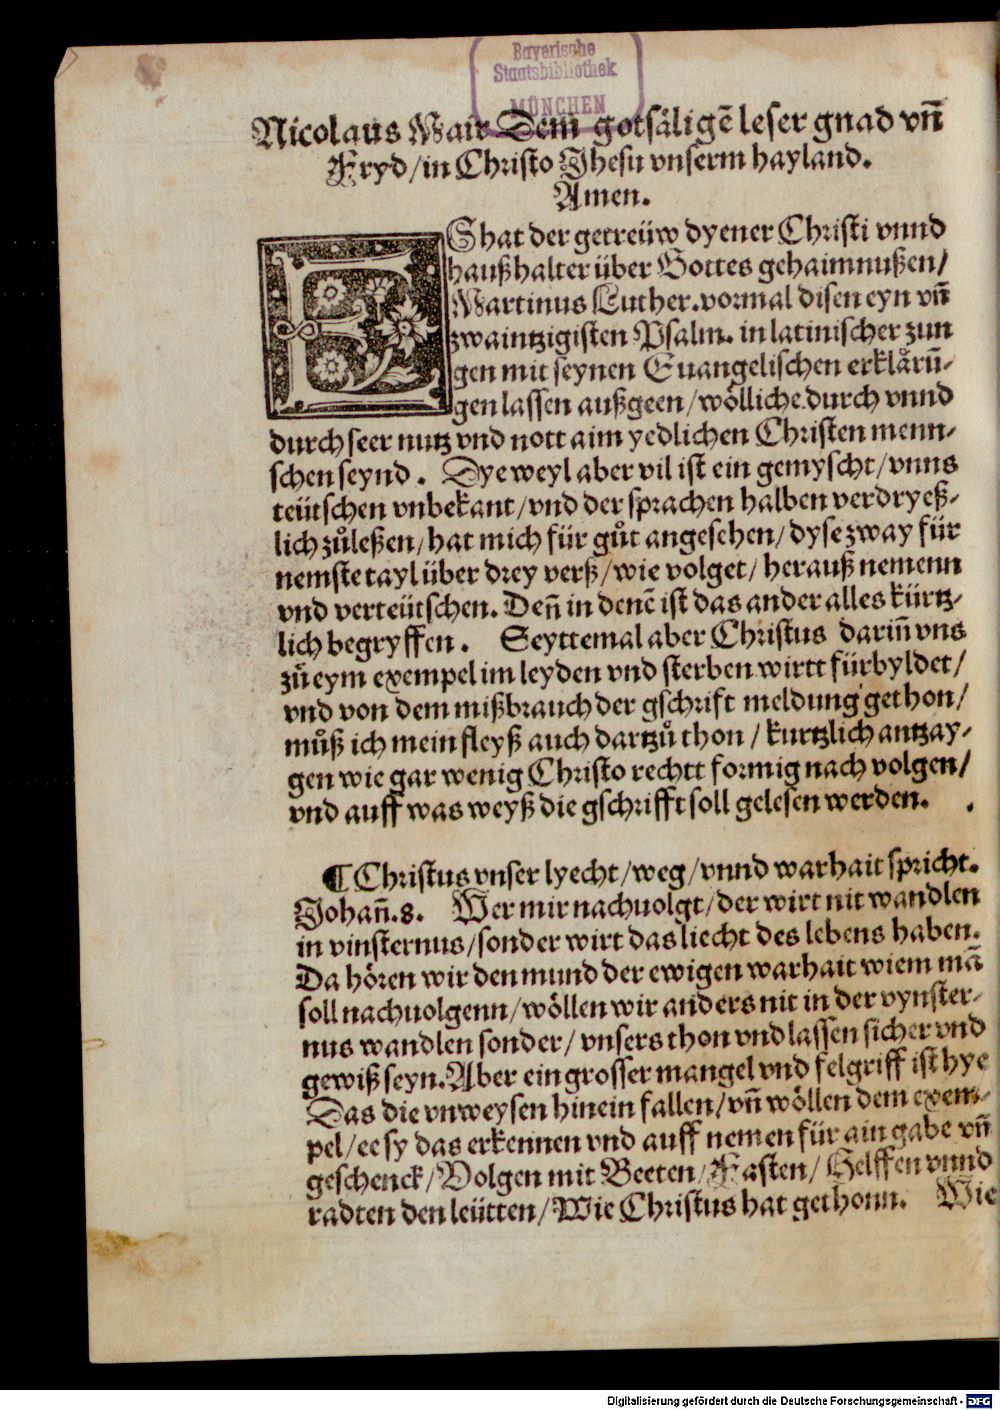 Bayerische
Staatsbibliothek
MÜNCHEN
Nicolaus Mair Dem gotsäligē leser gnad vn̄
Fryd/in Christo Jhesu vnserm hayland.
Amen.
ES hat der getreüw dyener Christi vnnd
haußhalter über Gottes gehaimnußen/
Martinus Luther.vormal disen eyn vn̄
zwaintzigisten Psalm. in latinischer zun
gen mit seynen Euangelischen erklårū-
gen lassen außgeen/wölliche.durch vnnd
durch seer nutz vnd nott aim yedlichen Christen menn-
schen seynd. Dye weyl aber vil ist ein gemyscht/vnns
teütschen vnbekant/vnd der sprachen halben verdryeß-
lich zůleßen/hat mich für gůt angesehen/dyse zway für
nemste tayl über drey verß/wie volget/herauß nemenn
vnd verteütschen. Den̄ in denē ist das ander alles kürtz-
lich begryffen. Seyttemal aber Christus darin̄ vns
zů eym exempel im leyden vnd sterben wirtt fürbyldet/
vnd von dem mißbrauch der gschrift meldung gethon/
můß ich mein fleyß auch dartzů thon/kurtzlich antzay-
gen wie gar wenig Christo rechtt formig nach volgen/
vnd auff was weyß die gschrifft soll gelesen werden.
¶ Christus vnser lyecht/weg/vnnd warhait spricht.
Johan̄.8. Wer mir nachuolgt/der wirt nit wandlen
in vinsternus/sonder wirt das liecht des lebens haben.
Da hören wir den mund der ewigen warhait wiem mā
soll nachuolgenn/wöllen wir anders nit in der vynster-
nus wandlen sonder/vnsers thon vnd lassen sicher vnd
gewiß seyn.Aber ein grosser mangel vnd felgriff ist hye
Das die vnweysen hinein fallen/vn̄ wöllen dem exem-
pel/ee sy das erkennen vnd auff nemen für ain gabe vn̄
geschenck/Volgen mit Beeten/Fasten/Helffen vnnd
radten den leütten/Wie Christus hat gethonn. Wie
Digitalisierung gefördert durch die Deutsche Forschungsgemeinschaft - DFG